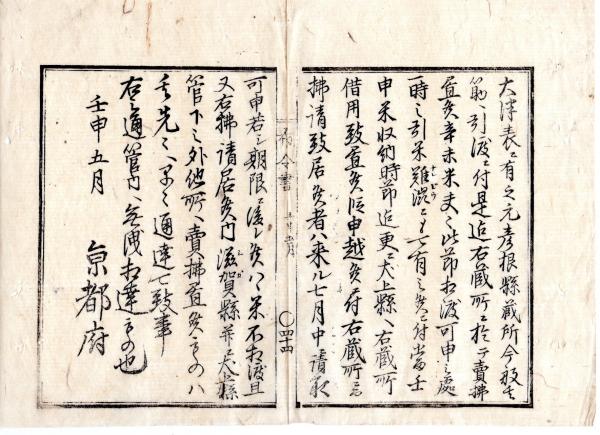 大津表ニ有之元彦根縣蔵所今般其
筋ヘ引渡ニ付是迄右蔵所ニ於テ賣拂
置候辛未米夫々此節相渡可申之處
一時之引米難渋ニモ可有之候ニ付當壬
申米収納時節迄更ニ犬上縣ヘ右蔵所
借用致置候段申越候ニ付右蔵所ニ而
拂請致居候者ハ来ル七月中請取
布令書
五月
〇四十四
可申若シ期限ニ後レ候ハヽ米不相渡且
又右拂請居候内滋賀縣并ニ犬上縣
管下之外他所ヘ賣拂置候ものハ
其先々ヘ早々通達可致事
右之通管内ヘ無洩相達するもの也
壬申五月
京都府